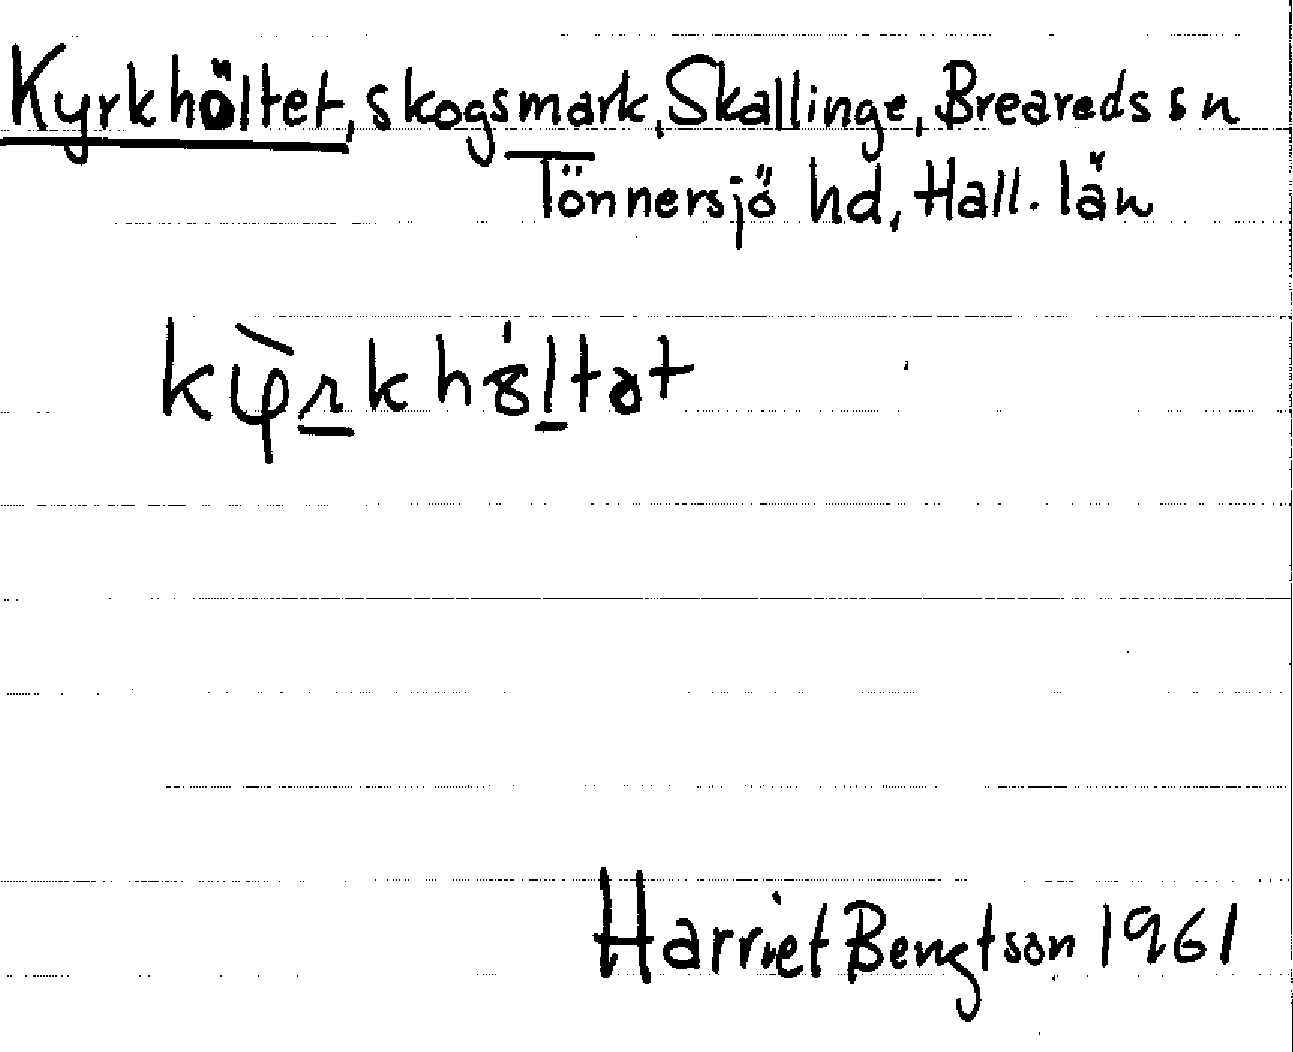 Kyrkhöltet, skogsmark, Skallinge, Breareds sn
Tönnersjö hd, Hall. län
Harriet Bengtson 1961